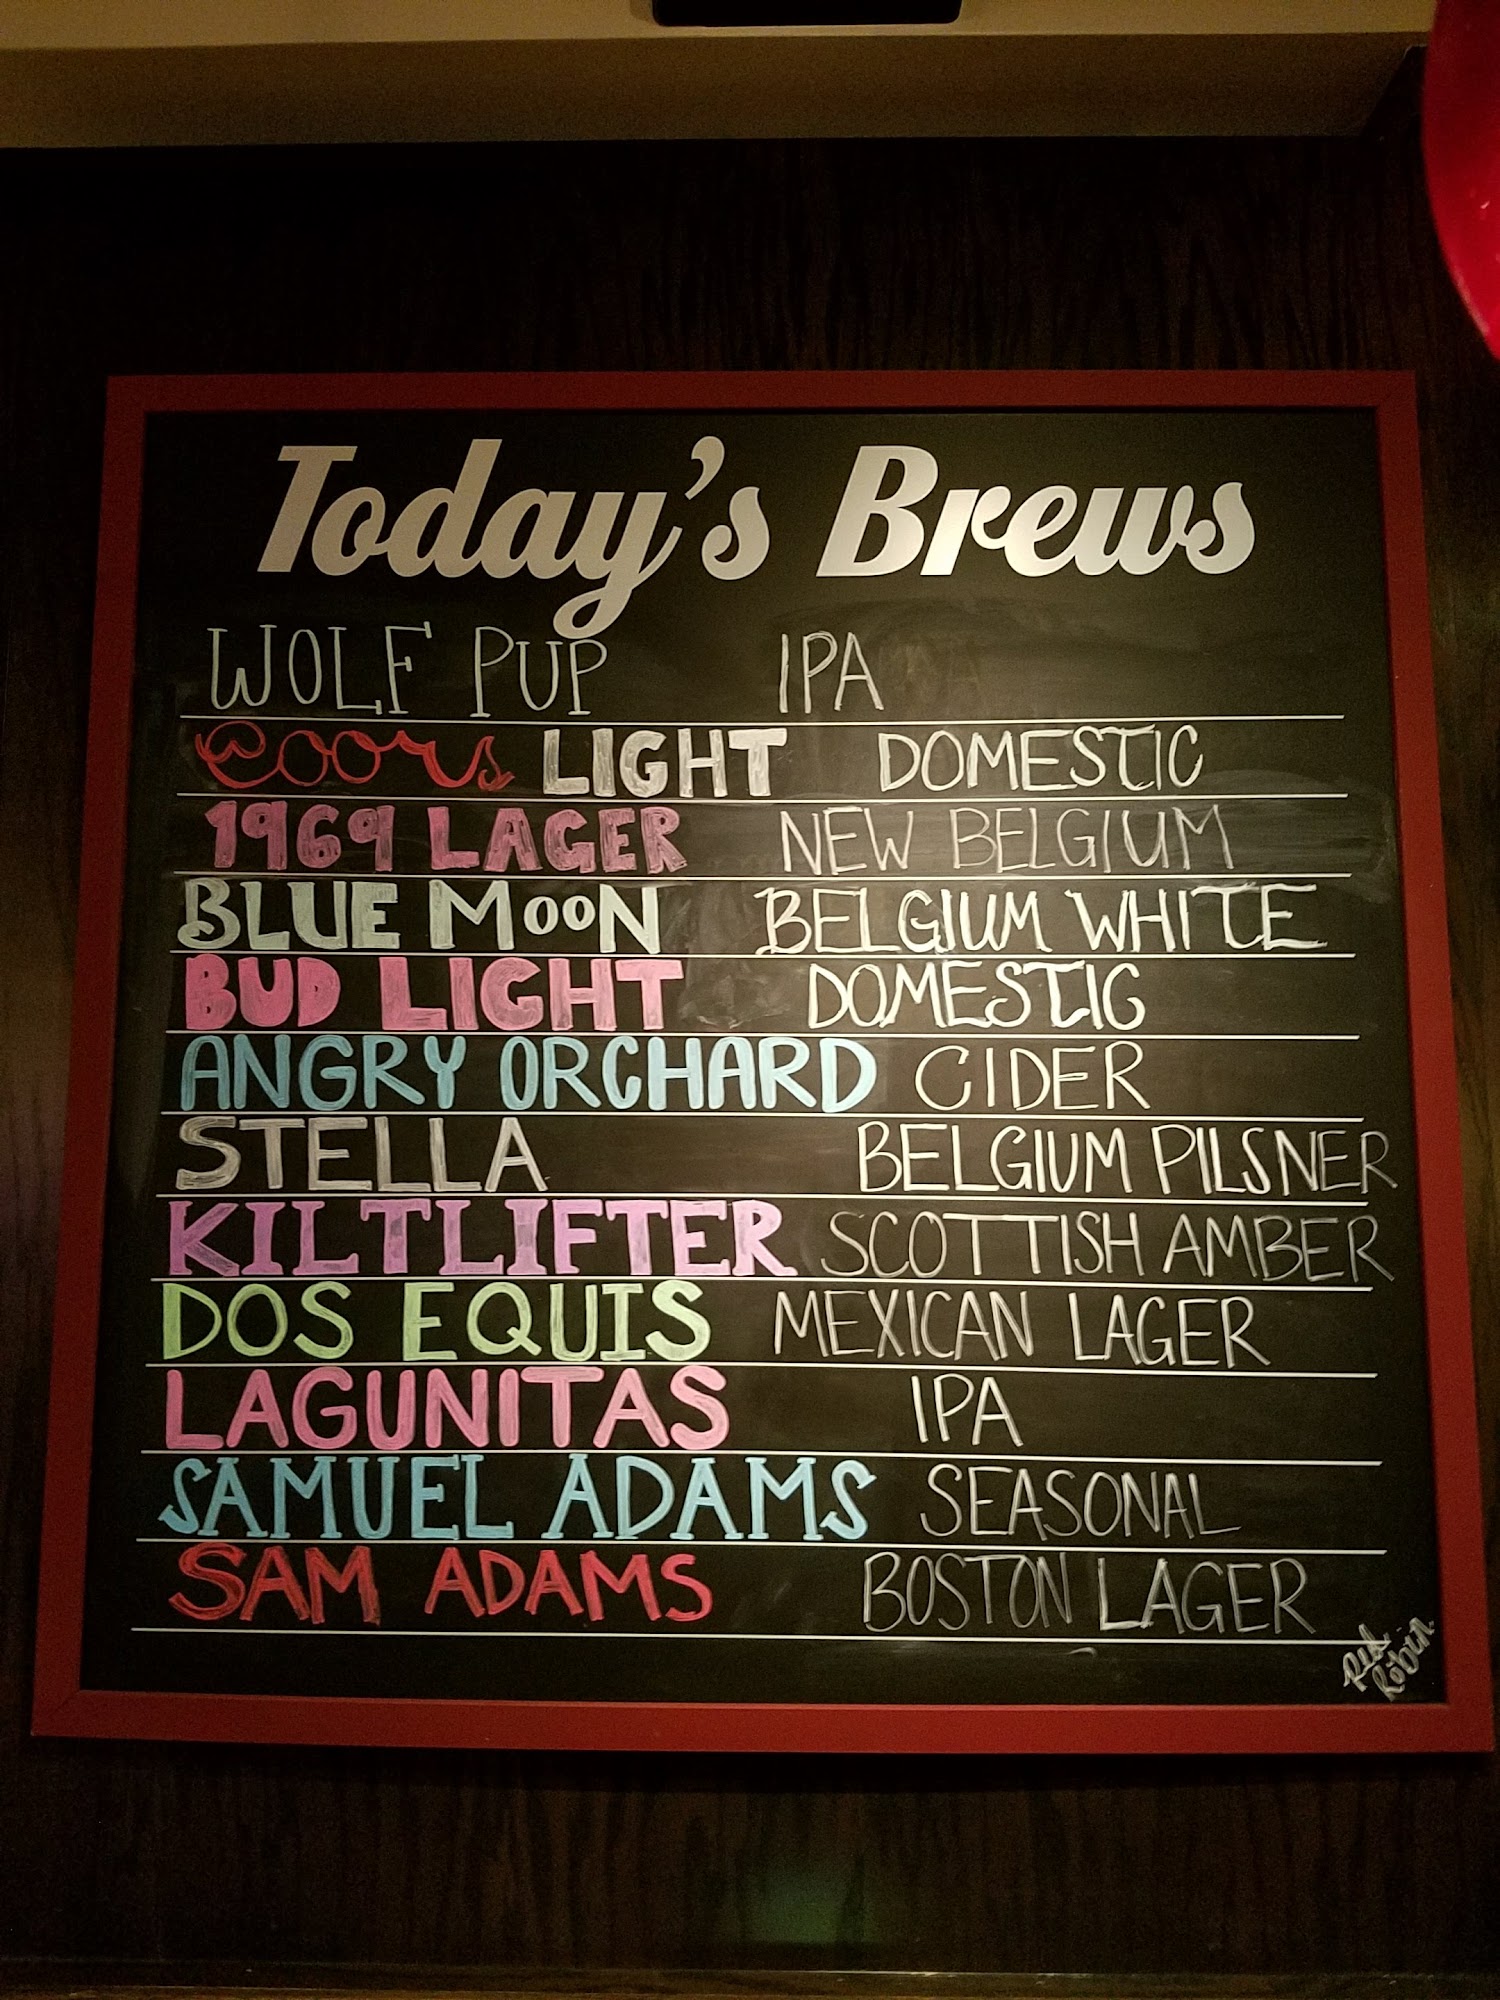 Today's Brews
WOLF PUP IPA
Coors LIGHT DOMESTIC
1969 LAGER NEW BELGIUM
BLUE MOON BELGIUM WHITE
BUD LIGHT DOMESTIC
ANGRY ORCHARD CIDER
STELLA BELGIUM PILSNER
KILTLIFTER SCOTTISH AMBER
DOS EQUIS MEXICAN LAGER
LAGUNITAS IPA
SAMUEL ADAMS SEASONAL
SAM ADAMS BOSTON LAGER
Red
Robin